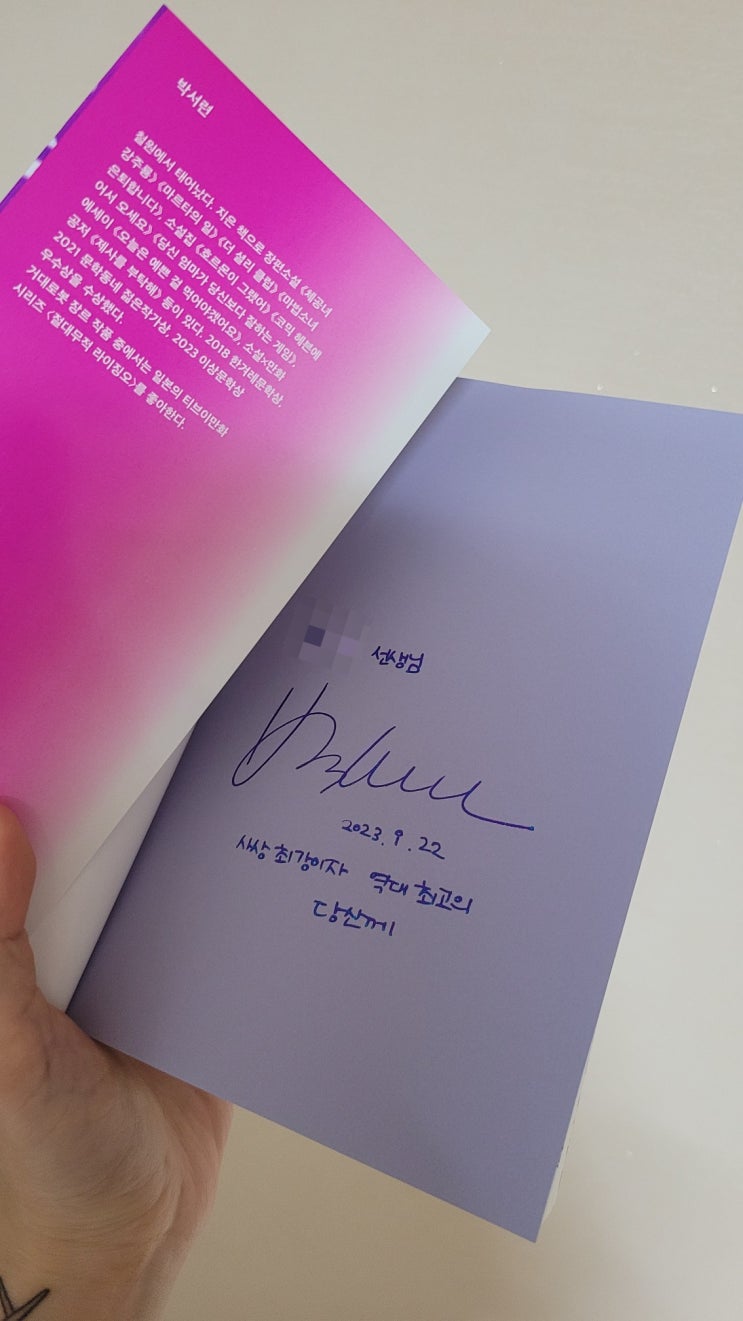 박서련
철원에서 태어났다. 지은 책으로 장편소설 《체공녀
강주룡》 《마르타의 일》 《더 셜리 클럽》 《마법소녀
은퇴합니다》, 소설집 《호르몬이 그랬어》 《코믹 헤븐에
어서 오세요》 《당신 엄마가 당신보다 잘하는 게임》,
에세이 《오늘은 예쁜 걸 먹어야겠어요》, 소설×만화
공저 《제사를 부탁해》 등이 있다. 2018 한겨레문학상,
2021 문학동네 젊은작가상, 2023 이상문학상
우수상을 수상했다.
거대로봇 장르 작품 중에서는 일본의 티브이만화
시리즈 〈절대무적 라이징오〉를 좋아한다.
선생님
2023. 9. 22
사상 최강이자 역대 최고의
당신께